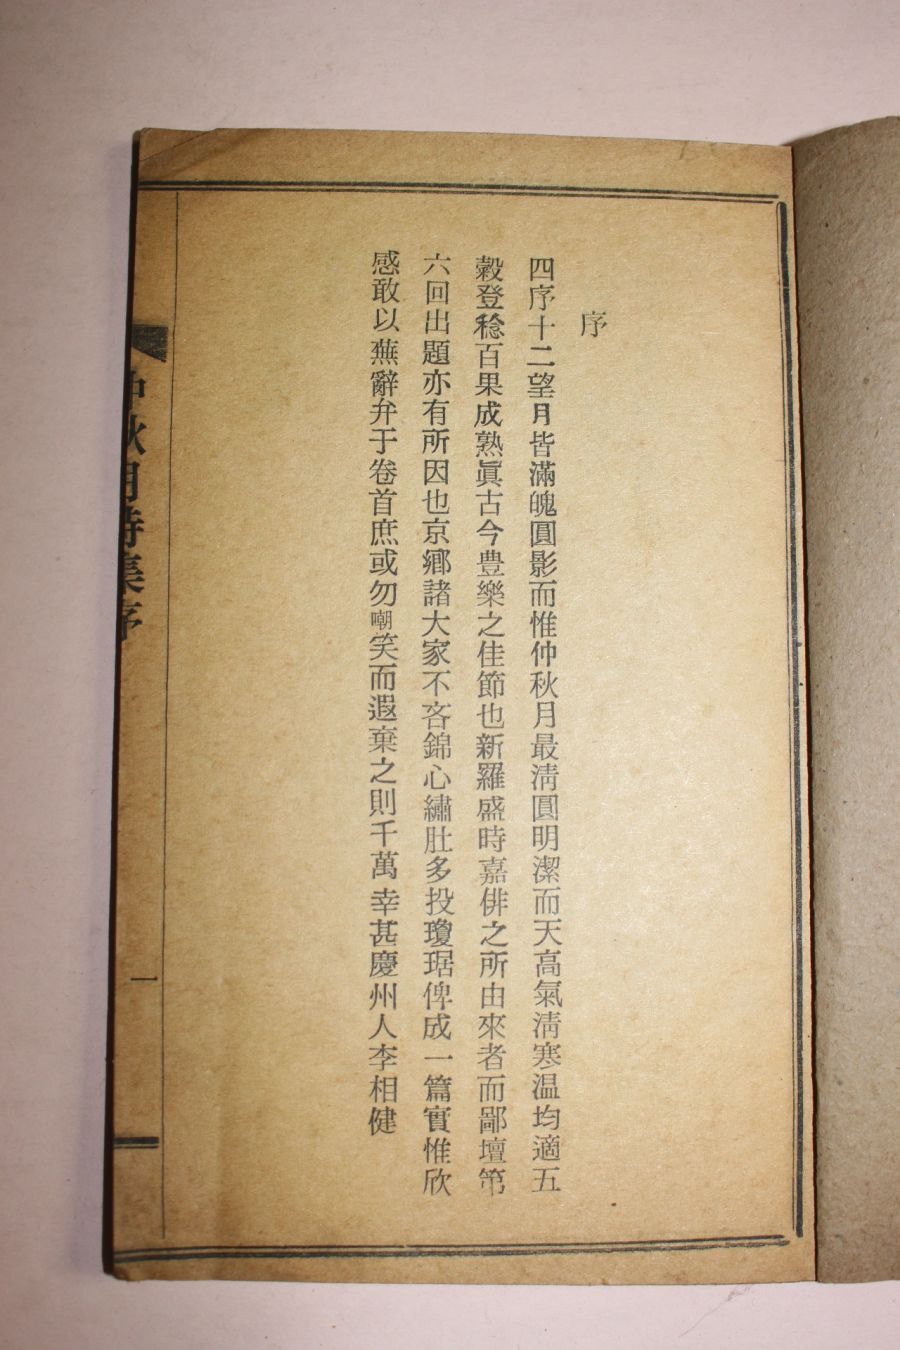 序
四序十二望月皆滿魄圓影而惟仲秋月最淸圓明潔而天高氣淸寒温均適五
穀登稔百果成熟眞古今豊樂之佳節也新羅盛時嘉俳之所由來者而鄙壇第
六回出題亦有所因也京鄕諸大家不吝錦心繡肚多投瓊琚俾成一篇實惟欣
感敢以蕪辭弁于卷首庶或勿嘲笑而遐棄之則千萬幸甚慶州人李相健
仲秋月詩集序
一